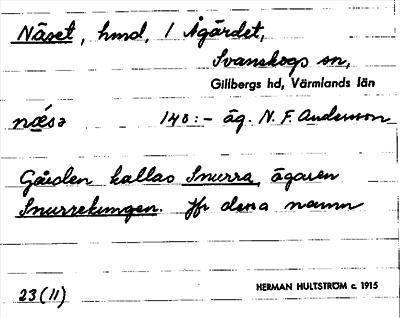 Näset, hmd, 1 Ågärdet,
Svanskogs sn,
Gillbergs hd, Värmlands län
næ̂sə 140:- äg. N. F. Andersson
Gården kallas Snurra, ägaren
Snurrekungen. Jfr dessa namn
23 (11) HERMAN HULTSTRÖM c. 1915